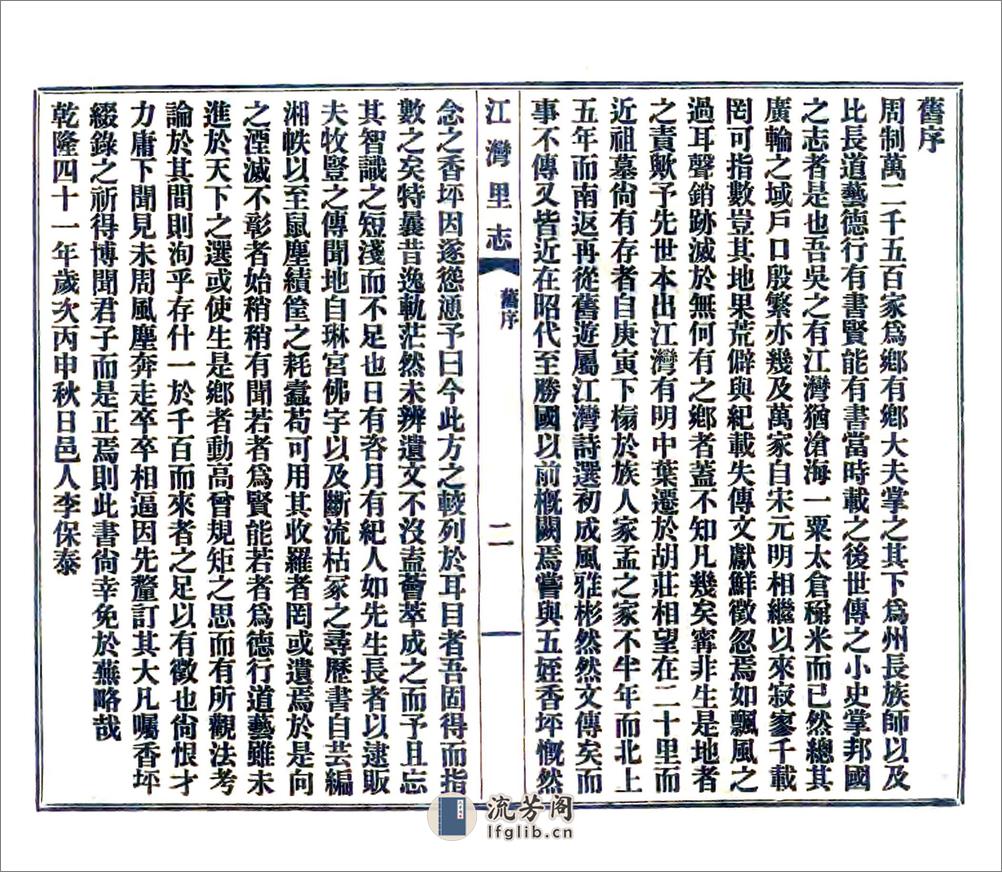 舊序
周制萬二千五百家爲鄉有鄉大夫掌之其下爲州長族師以及
比長道藝德行有書賢能有書當時載之後世傳之小史掌邦國
之志者是也吾吳之有江灣猶滄海一粟太倉稊米而已然總其
廣輪之域戶口殷繁亦幾及萬家自宋元明相繼以來寂寥千載
罔可指數豈其地果荒僻與紀載失傳文獻鮮徵忽焉如飄風之
過耳聲銷跡滅於無何有之鄉者蓋不知凡幾矣寗非生是地者
之責歟予先世本出江灣有明中葉遷於胡莊相望在二十里而
近祖墓尙有存者自庚寅下榻於族人家孟之家不半年而北上
五年而南返再從舊遊屬江灣詩選初成風雅彬然然文傳矣而
事不傳又皆近在昭代至勝國以前槪闕焉嘗與五姪香坪慨然
江灣里志
舊序
二
念之香坪因遂慫慂予曰今此方之較列於耳目者吾固得而指
數之矣特曩昔逸軌茫然未辨遺文不沒盍薈萃成之而予且忘
其智識之短淺而不足也日有咨月有紀人如先生長者以逮販
夫牧豎之傳聞地自琳宮佛字以及斷流枯冢之尋歷書自芸編
湘帙以至鼠塵績筐之耗蠹苟可用其收羅者罔或遺焉於是向
之湮滅不彰者始稍稍有聞若者爲賢能若者爲德行道藝雖未
進於天下之選或使生是鄉者動高曾規矩之思而有所觀法考
論於其間則洵乎存什一於千百而來者之足以有徵也尙恨才
力庸下聞見未周風塵奔走卒卒相逼因先釐訂其大凡囑香坪
綴錄之祈得博聞君子而是正焉則此書尙幸免於蕪略哉
乾隆四十一年歲次丙申秋日邑人李保泰
流芳阁
lfglib.cn